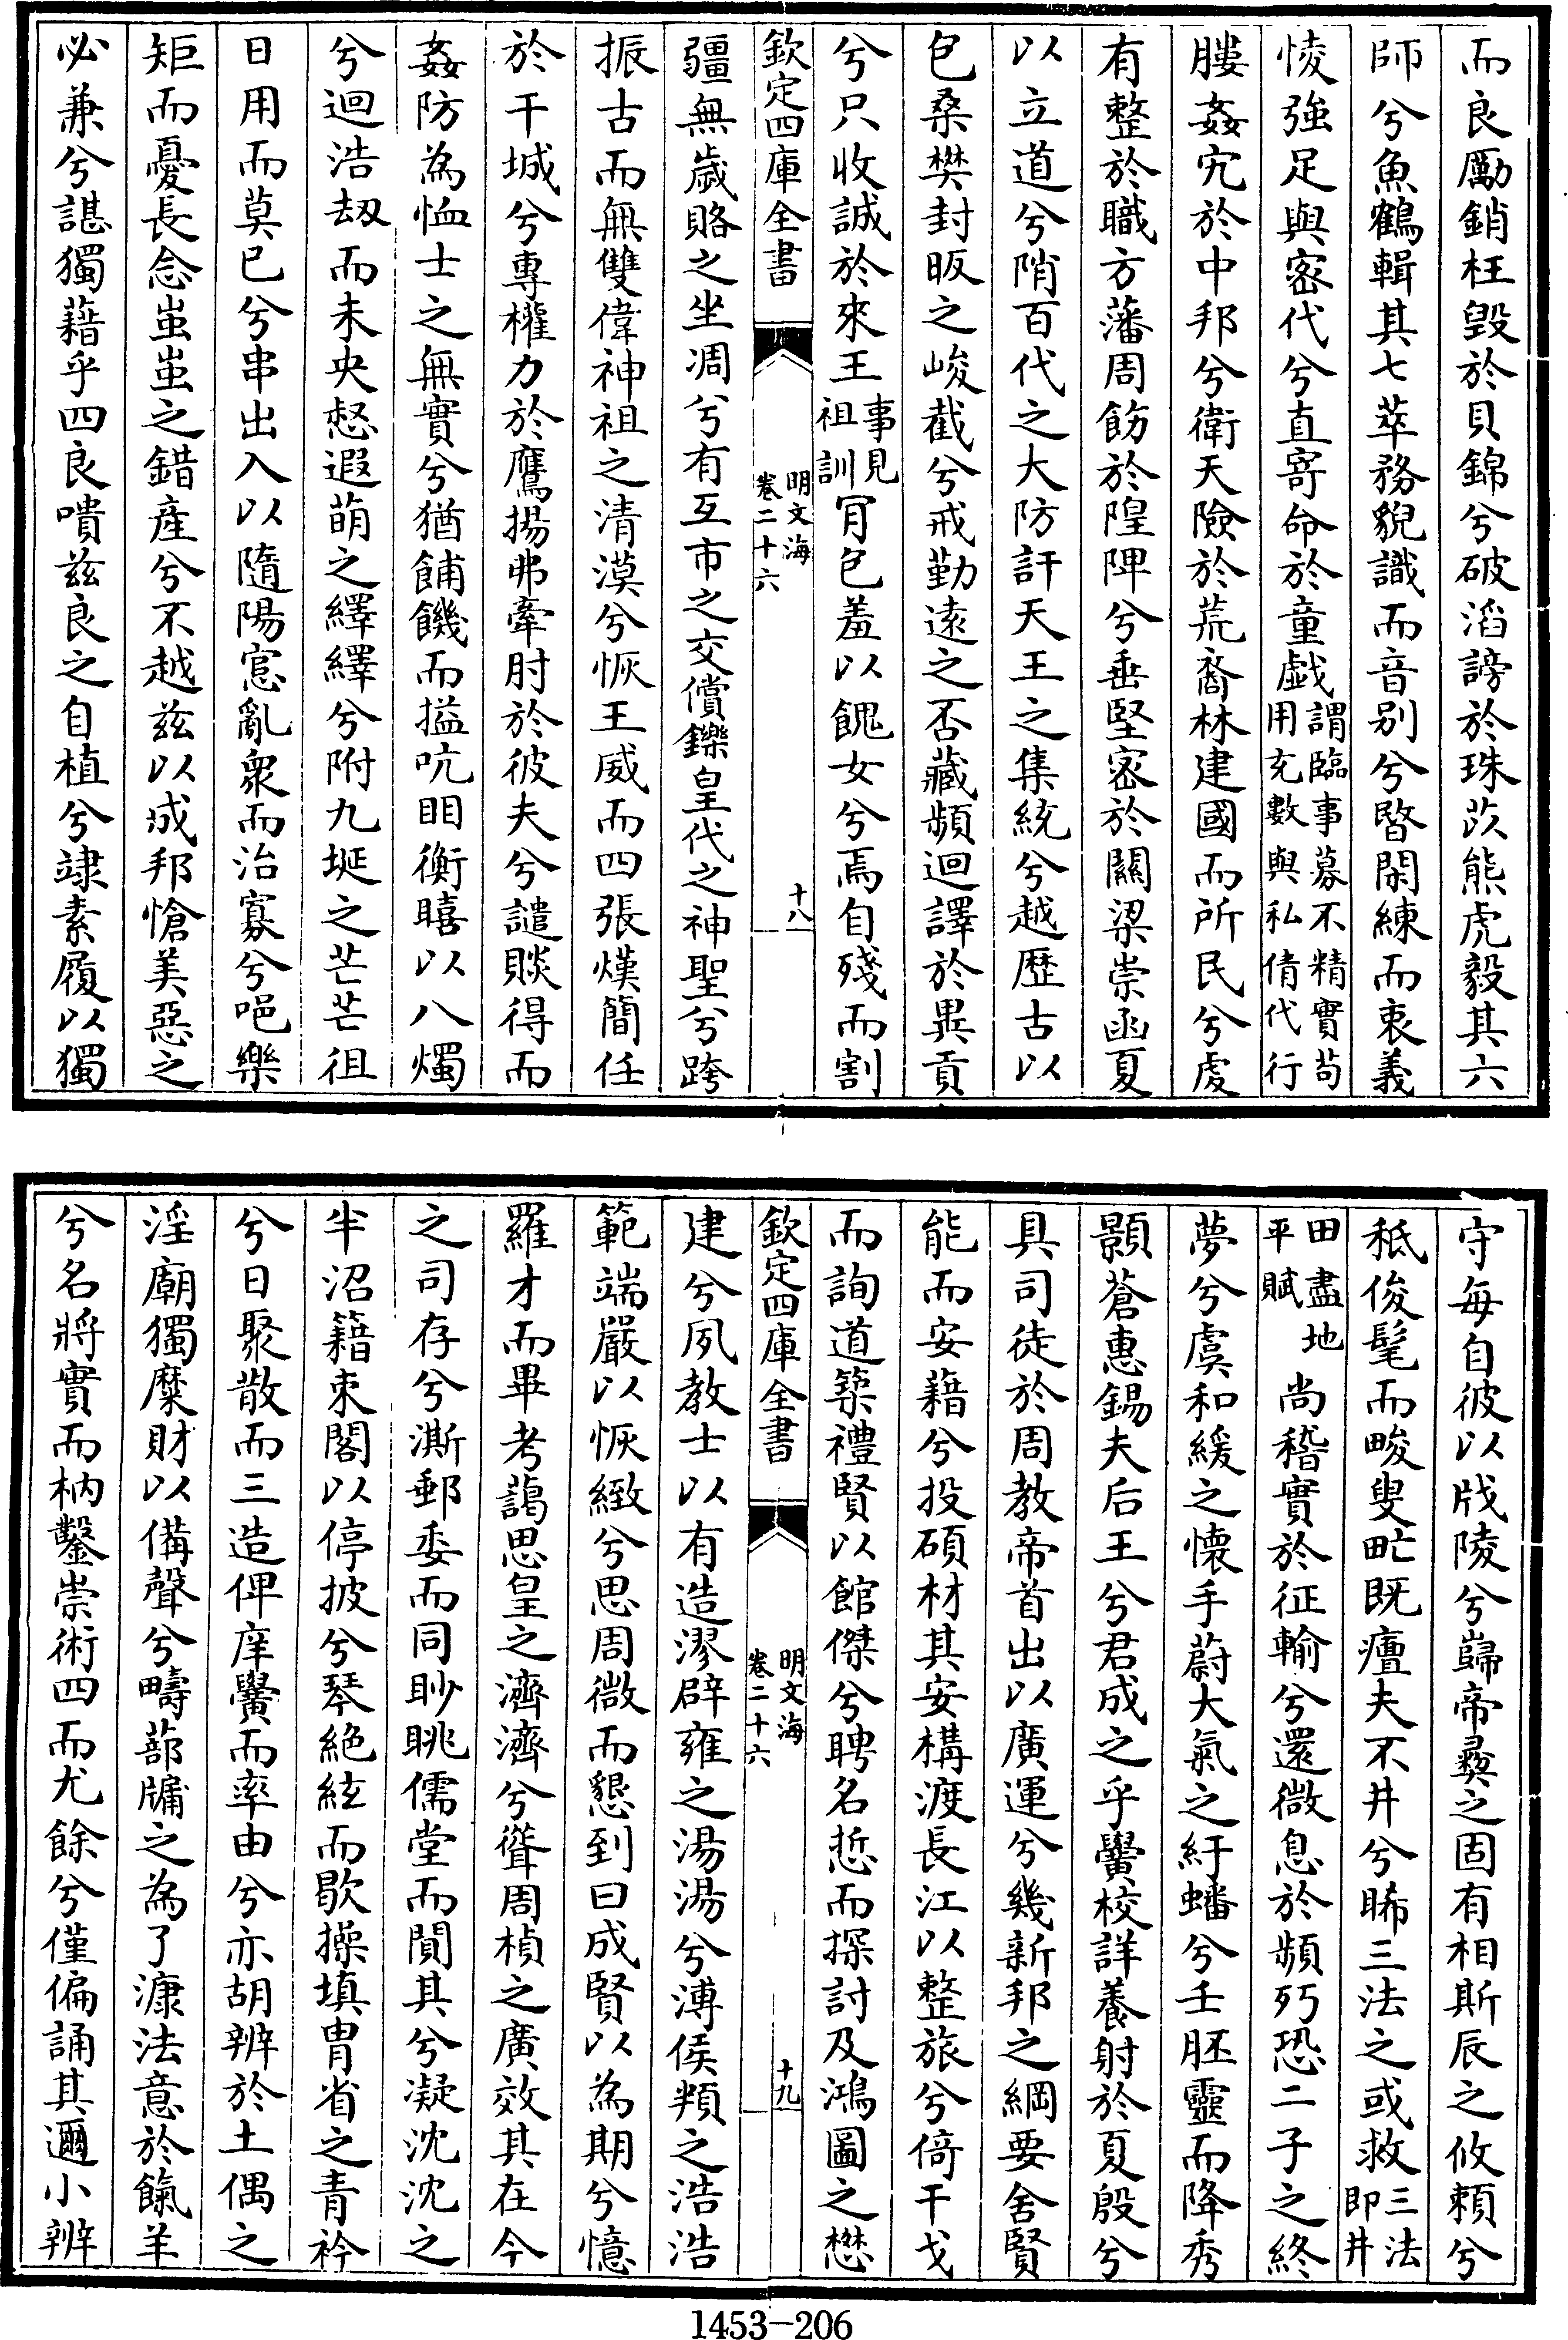 而良勵銷枉毀於貝錦兮破滔謗於珠苡熊虎毅其六
師兮魚鶴輯其七萃務貌識而音别兮暋閑練而衷義
悛強足與宻代兮直寄命於童戯謂臨事募不精實苟用充數與私倩代行
膢姦宄於中邦兮衛天險於荒裔林建國而所民兮處
有整於職方藩周飭於隍陴兮垂堅宻於關梁崇函夏
以立道兮陗百代之大防訐天王之集統兮越歴古以
包桑樊封昄之峻截兮戒勤逺之否藏頻迴譯於異貢
兮只收誠於來王事見祖訓肎包羞以餽女兮焉自殘而割
欽定四庫全書
明文海
卷二十六
十八
疆無歲賂之坐凋兮有互市之交償鑠皇代之神聖兮跨
振古而無雙偉神祖之清漠兮恢王威而四張熯簡任
於干城兮專權力於鷹揚弗牽肘於彼夫兮譴賧得而
姦防為恤士之無實兮猶餔饑而搤吭盷衡瞦以八燭
兮迴浩刼而未央惄遐萌之繹繹兮附九埏之芒芒徂
日用而莫已兮串出入以隨陽窻亂衆而治寡兮唈樂
矩而憂長念蚩蚩之錯産兮不越兹以成邦愴美惡之
必兼兮諶獨藉乎四良嘳兹良之自植兮竦素履以獨
守每自彼以戕陵兮巋帝彛之固有相斯辰之攸頼兮
秪俊髦而畯叟甿既癉夫不井兮睎三法之或救三法即井
田盡地平賦尚稽實於征輸兮還微息於頻歾恐二子之終
夢兮虞和緩之懷手蔚大氣之紆蟠兮壬胚靈而降秀
顥蒼惠錫夫后王兮君成之乎黌校詳養射於夏殷兮
具司徒於周教帝首出以廣運兮幾新邦之綱要舍賢
能而安藉兮投碩材其安構渡長江以整旅兮倚干戈
而詢道築禮賢以館傑兮聘名悊而探討及鴻圖之懋
欽定四庫全書
明文海
卷二十六
十九
建兮夙教士以有造漻辟雍之湯湯兮溥侯頖之浩浩
範端嚴以恢緻兮思周微而懇到曰成賢以為期兮憶
羅才而畢考藹思皇之濟濟兮聳周楨之廣效其在今
之司存兮澌郵委而同眇眺儒堂而閴其兮凝沈沈之
半沼籍束閣以停披兮琴絶絃而歇操填胄省之青衿
兮日聚散而三造俾庠黌而率由兮亦胡辨於土偶之
淫廟獨糜財以備聲兮疇蔀牖之為了漮法意於餼羊
兮名將實而枘鑿崇術四而尤餘兮僅偏誦其邇小辨
1453-206